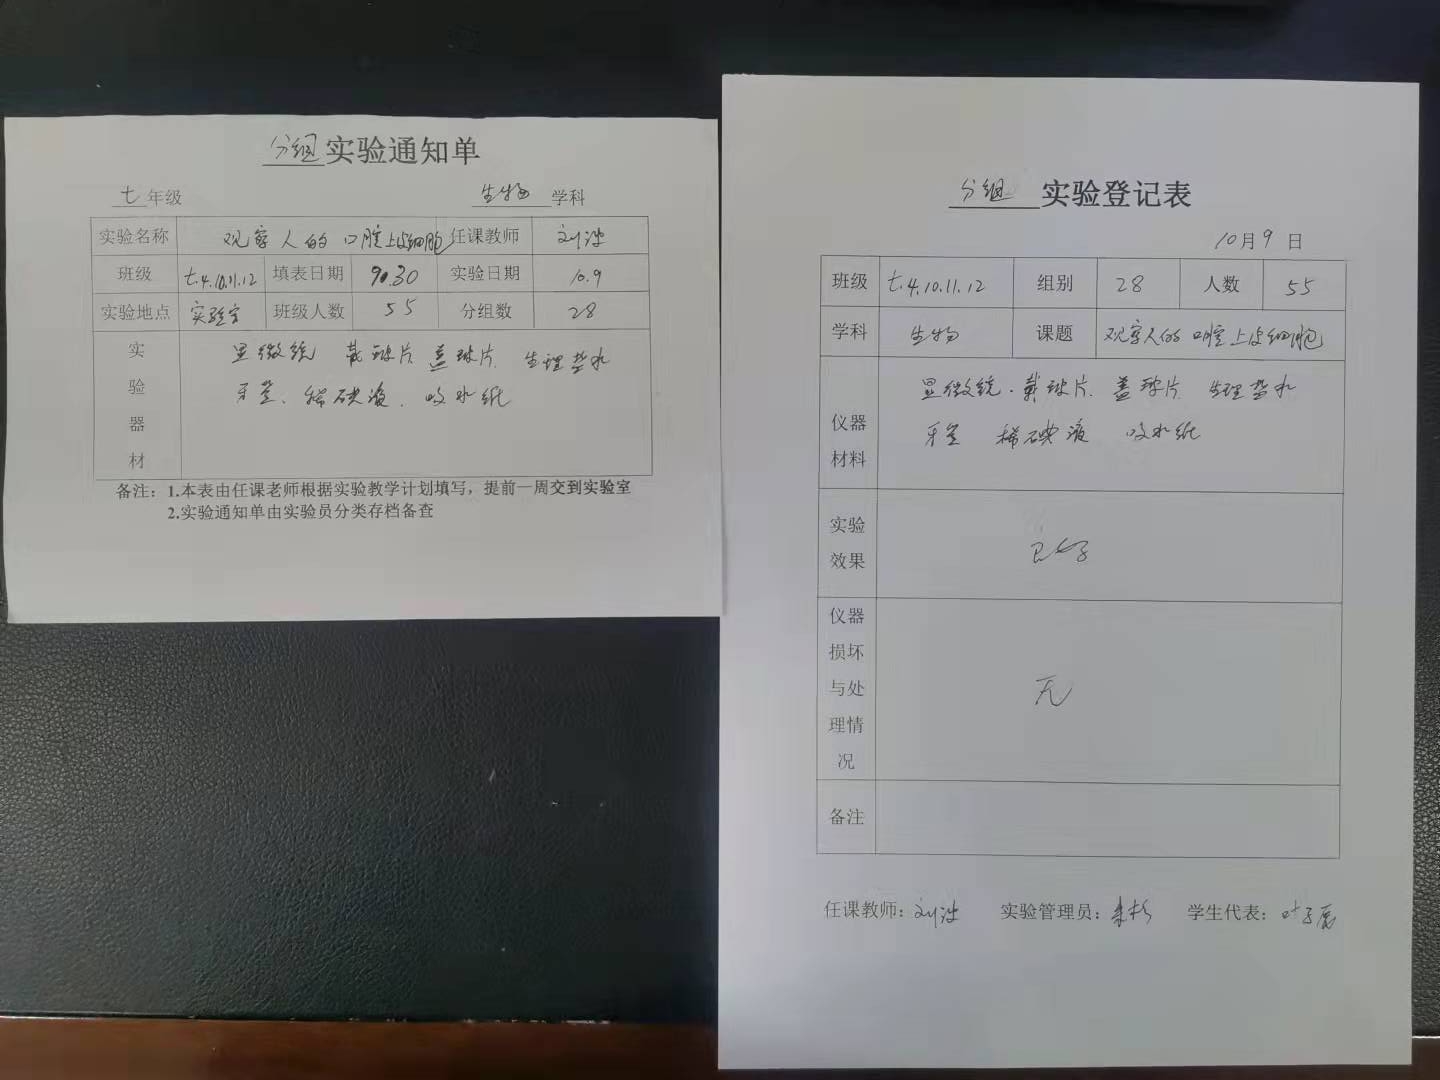 分组实验通知单
七年级 生物学科
实验名称 观察人的口腔上皮细胞 任课教师 刘波
班级 七.4.10.11.12 填表日期 9.30 实验日期 10.9
实验地点 实验室 班级人数 55 分组数 28
实验器材 显微镜 载玻片 盖玻片 生理盐水
牙签、稀碘液、吸水纸
备注：1.本表由任课老师根据实验教学计划填写，提前一周交到实验室
2.实验通知单由实验员分类存档备查
分组 实验登记表
10月9日
班级 七.4.10.11.12 组别 28 人数 55
学科 生物 课题 观察人的口腔上皮细胞
仪器材料 显微镜.载玻片.盖玻片 生理盐水
牙签 稀碘液 吸水纸
实验效果 良好
仪器损坏与处理情况 无
备注
任课教师：刘波 实验管理员： 学生代表：叶子辰